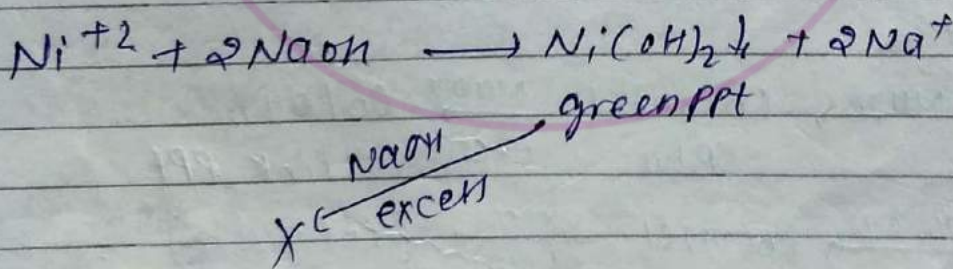 Ni⁺² + 2NaOH ⟶ Ni(OH)₂↓ + 2Na⁺
green ppt
NaOH
excess
X